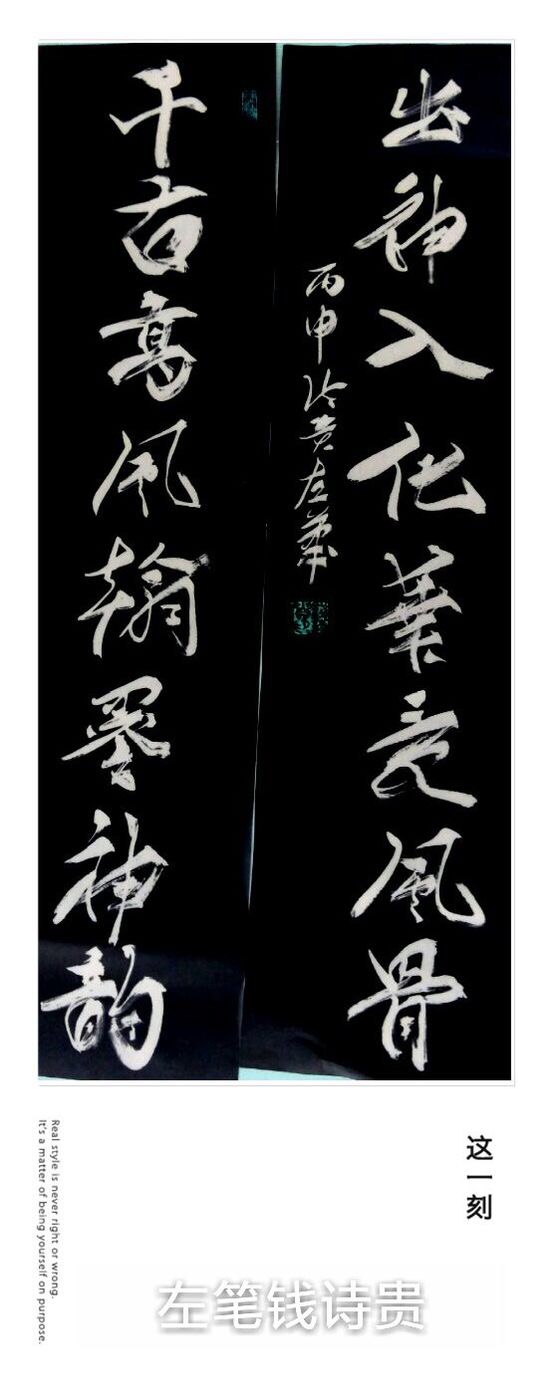 出神入化筆意風骨
丙申诗贵左筆
千古高風翰墨神韵
这一刻
Real style is never right or wrong.
It's a matter of being yourself on purpose.
左笔钱诗贵